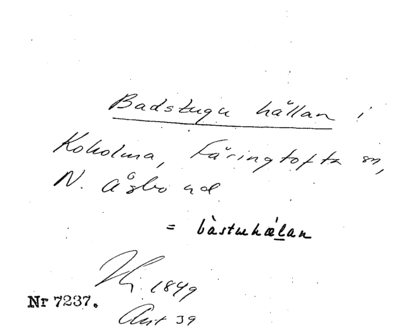 Badstugu hållan i
Koholma, Färingtofta sn,
N. Åsbo hd
= bàstuhæl̲an
1849
Nr 7237.
Avt 39